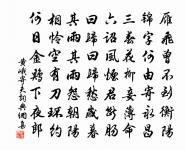 雁飛曾不到衡陽
錦字何由寄永昌
三春花柳妾薄命
六詔風煙君斷腸
曰歸曰歸愁歲暮
其雨其雨怨朝陽
相憐空有刀環約
何日金雞下夜郎
黃峨寄夫詞典網書